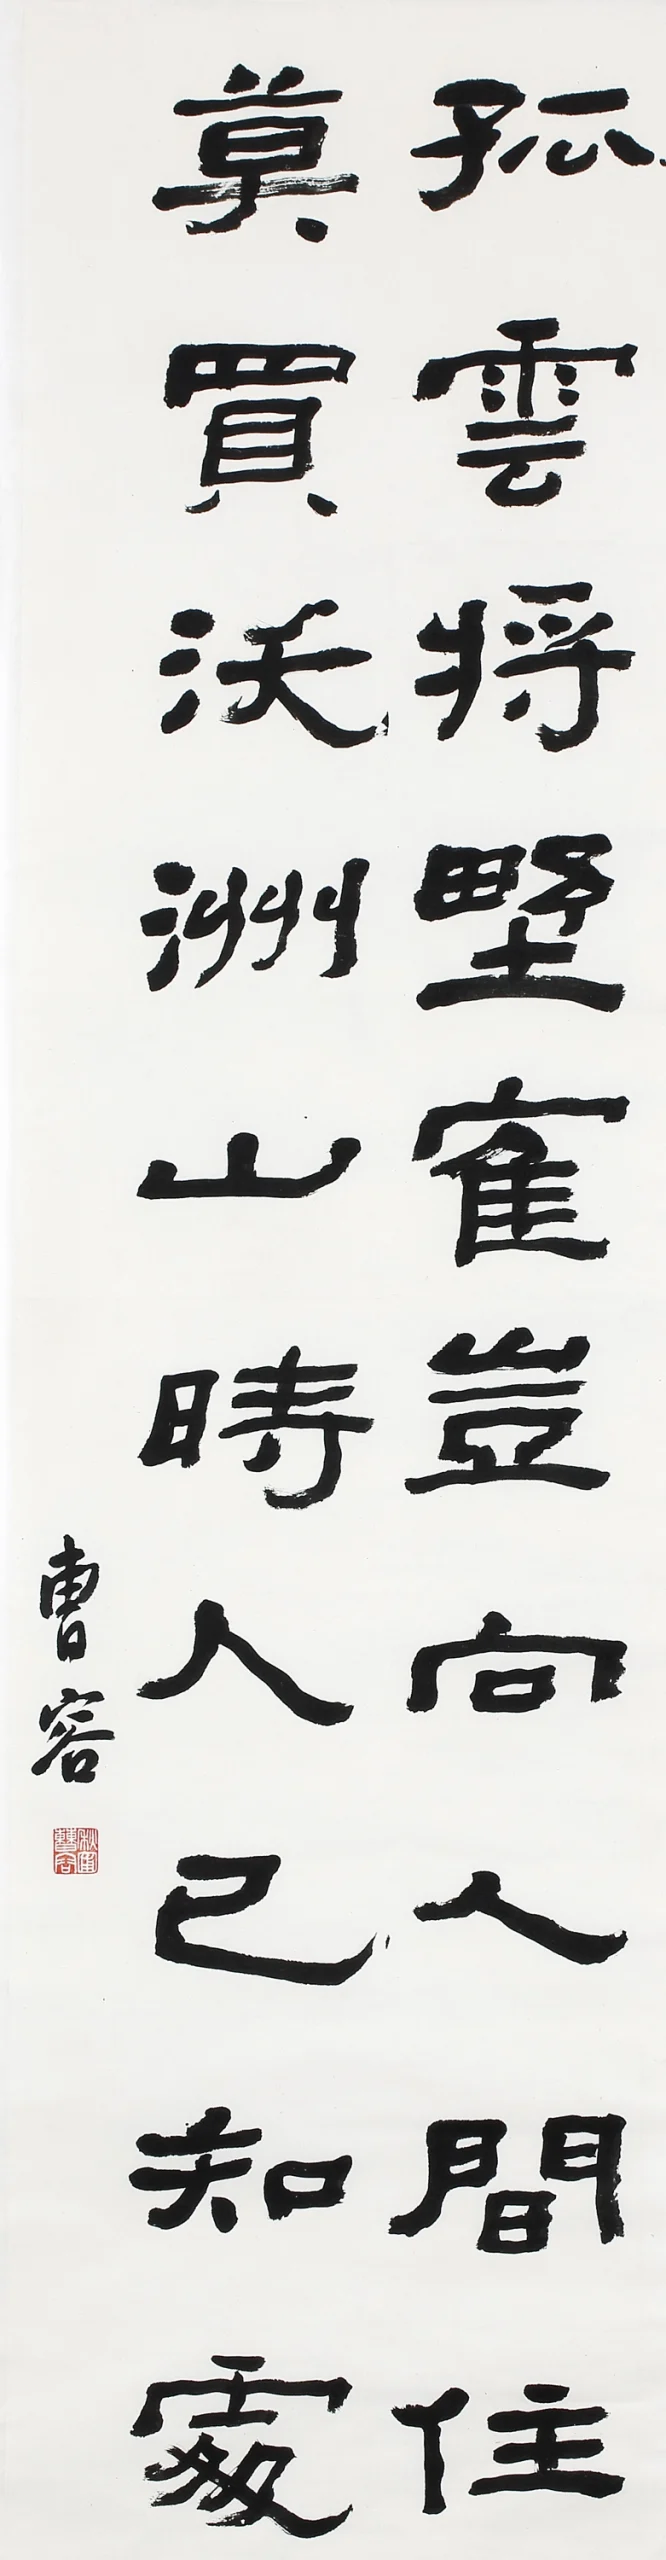 孤雲將野隺豈向人間住
莫買沃洲山時人已知處
曹容